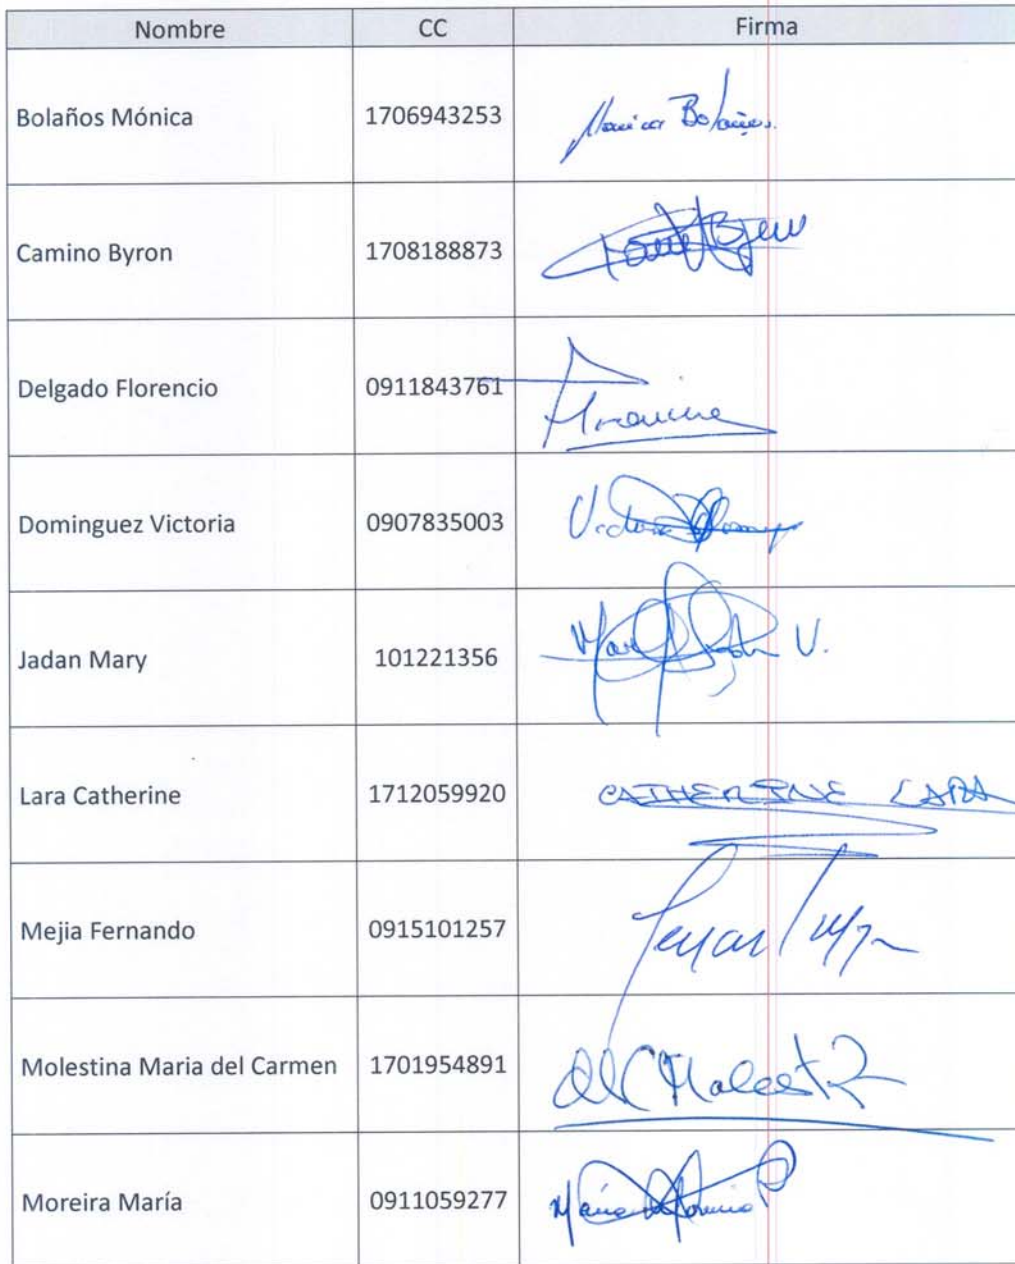 Nombre CC Firma
Bolaños Mónica 1706943253 Monica Bolaños.
Camino Byron 1708188873
Delgado Florencio 0911843761
Dominguez Victoria 0907835003 Victoria
Jadan Mary 101221356 Mary V.
Lara Catherine 1712059920 CATHERINE LARA
Mejia Fernando 0915101257
Molestina Maria del Carmen 1701954891
Moreira María 0911059277 María